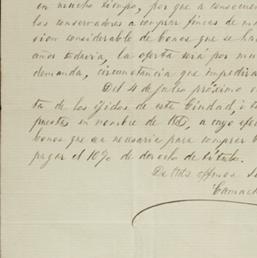 en mucho tiempo, por que a consecuen
los conservadores a comprar fincas de
sion considerable de bonos que se ha
años todavia, la oferta será por mu
demanda, circunstancia que impedirá
Del 4 de Julio próximo
ta de los Egidos de esta Ciudad, i
puesta en nombre de Ud, a cuyo efe
bonos que sea necesario para comprar
pagar el 10% de derecho de título.
De Uds. afmos
Camach